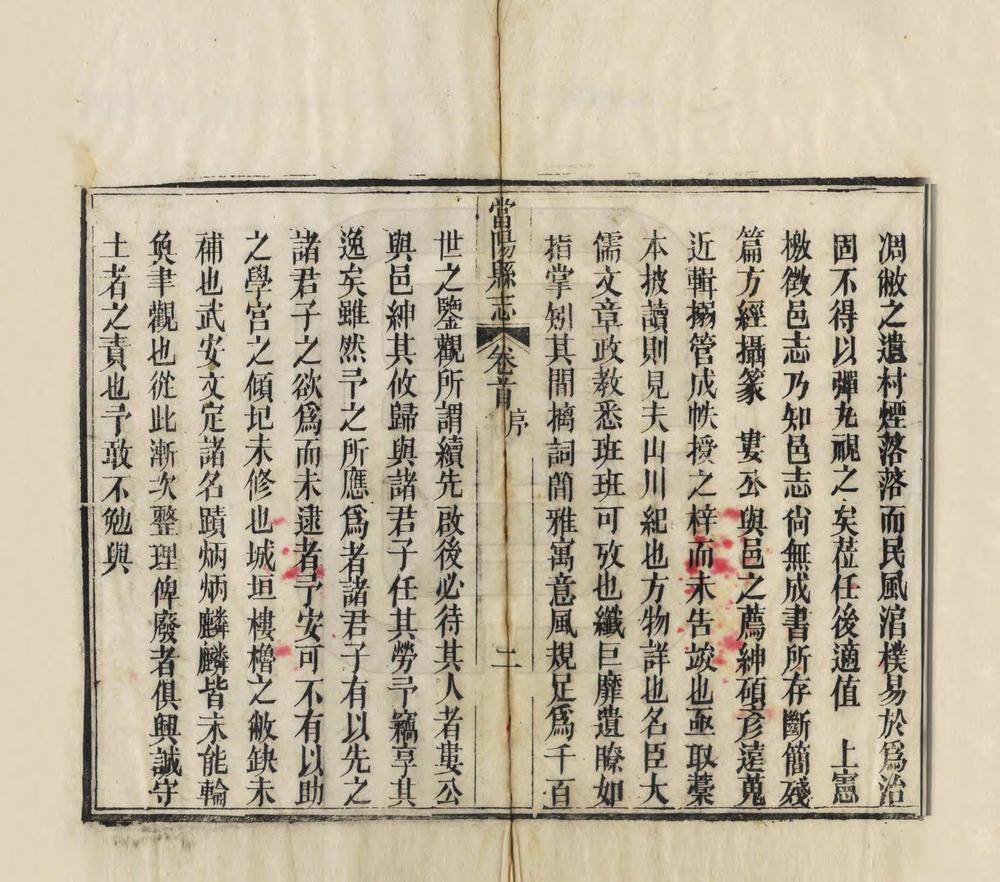 凋敝之遺村煙落落而民風涫樸易於爲治
固不得以彈丸視之矣莅任後適值　上憲
檄徵邑志乃知邑志尙無成書所存斷簡殘
篇方經攝篆　婁公與邑之薦紳碩彥遠蒐
近輯搦管成帙授之梓而未告竣也亟取藁
本披讀則見夫山川紀也方物詳也名臣大
儒文章政敎悉班班可攷也纖巨靡遺瞭如
指掌矧其間摛詞簡雅寓意風規足爲千百
當陽縣志　卷首　序　二
世之鑒觀所謂續先啟後必待其人者婁公
與邑紳其攸歸與諸君子任其勞予竊享其
逸矣雖然予之所應爲者諸君子有以先之
諸君子之欲爲而未逮者予安可不有以助
之學宮之傾圮未修也城垣樓櫓之敝缺未
補也武安文定諸名蹟炳炳麟麟皆未能輪
奐聿觀也從此漸次整理俾廢者俱興誠守
土者之責也予敢不勉與